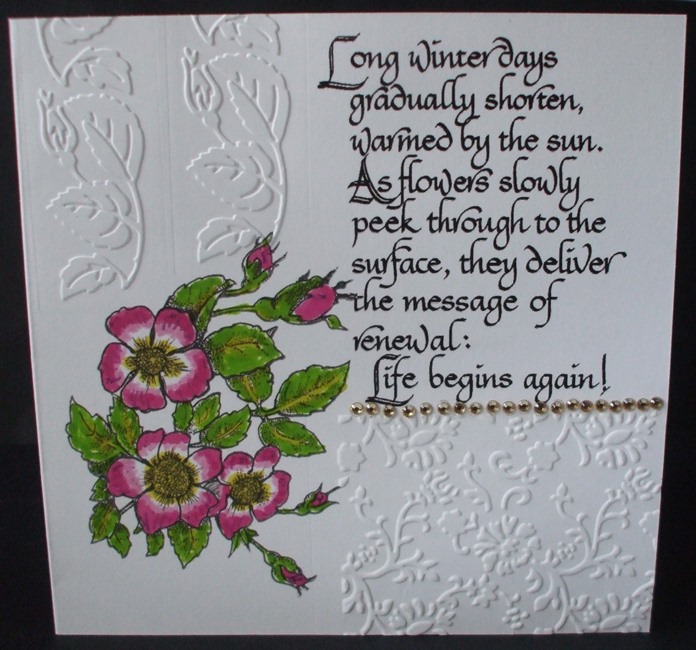 Long winter days
gradually shorten,
warmed by the sun.
As flowers slowly
peek through to the
surface, they deliver
the message of
renewal:
Life begins again!